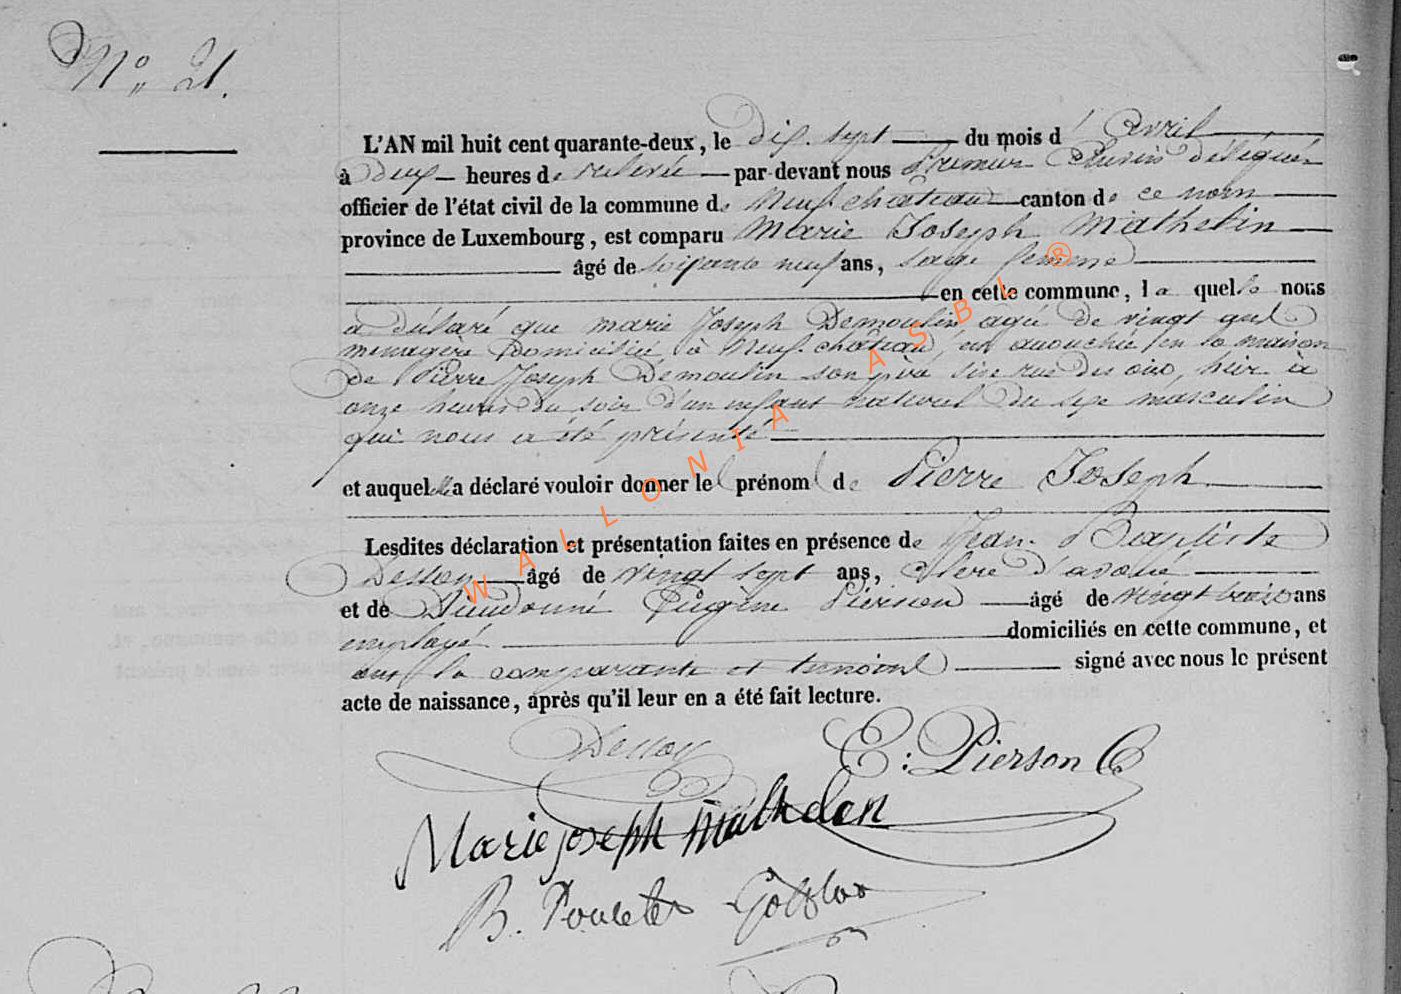 N° 21.
L'AN mil huit cent quarante-deux, le dix sept du mois d'avril
à deux heures de relevée par-devant nous Premier Echevin délégué
officier de l'état civil de la commune de Neufchateau canton de ce nom
province de Luxembourg, est comparu Marie Joseph Mathelin
âgé de soixante neuf ans, sage femme
en cette commune, la quelle nous
a déclaré que marie Joseph Demoulin agée de vingt
menagère Domiciliée à Neufchateau, est accouchée en la maison
de Pierre Joseph Demoulin son père sise rue des, hier à
onze heures du soir d'un enfant naturel du sexe masculin
qui nous a été présenté
et auquel elle a déclaré vouloir donner le prénom de Pierre Joseph
Lesdites déclaration et présentation faites en présence de Jean Baptiste
Dessoy âgé de vingt sept ans, clerc d'avoué
et de Dieudonné Eugène Pierson âgé de vingt trois ans
employé domiciliés en cette commune, et
ont la comparante et témoins signé avec nous le présent
acte de naissance, après qu'il leur en a été fait lecture.
Dessoy E: Pierson
Marie joseph
B.
WALLONIA ASBL ®